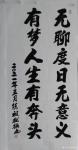 无聊度日无意义
有梦人生有奔头